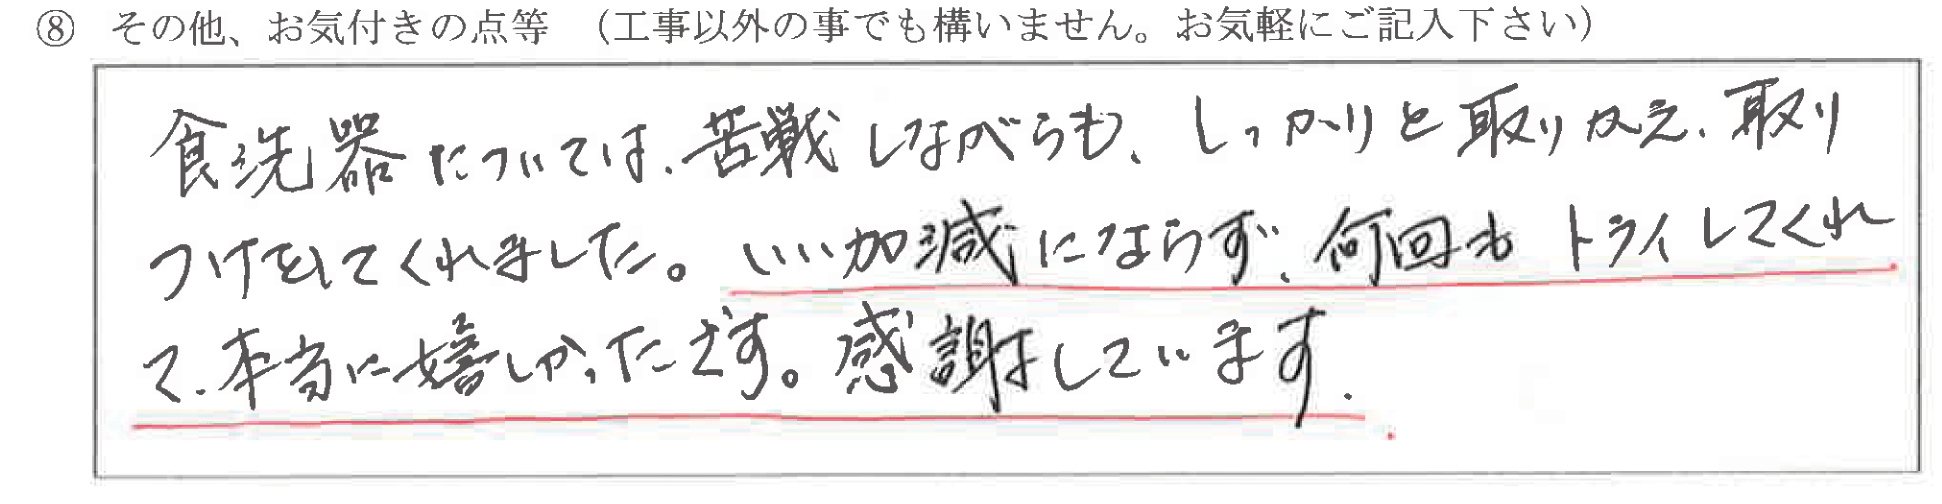 ⑧ その他、お気付きの点等 （工事以外の事でも構いません。お気軽にご記入下さい）
食洗器については、苦戦しながらも、しっかりと取りかえ、取り
つけをしてくれました。いい加減にならず、何回もトライしてくれ
て、本当に嬉しかったです。感謝しています.